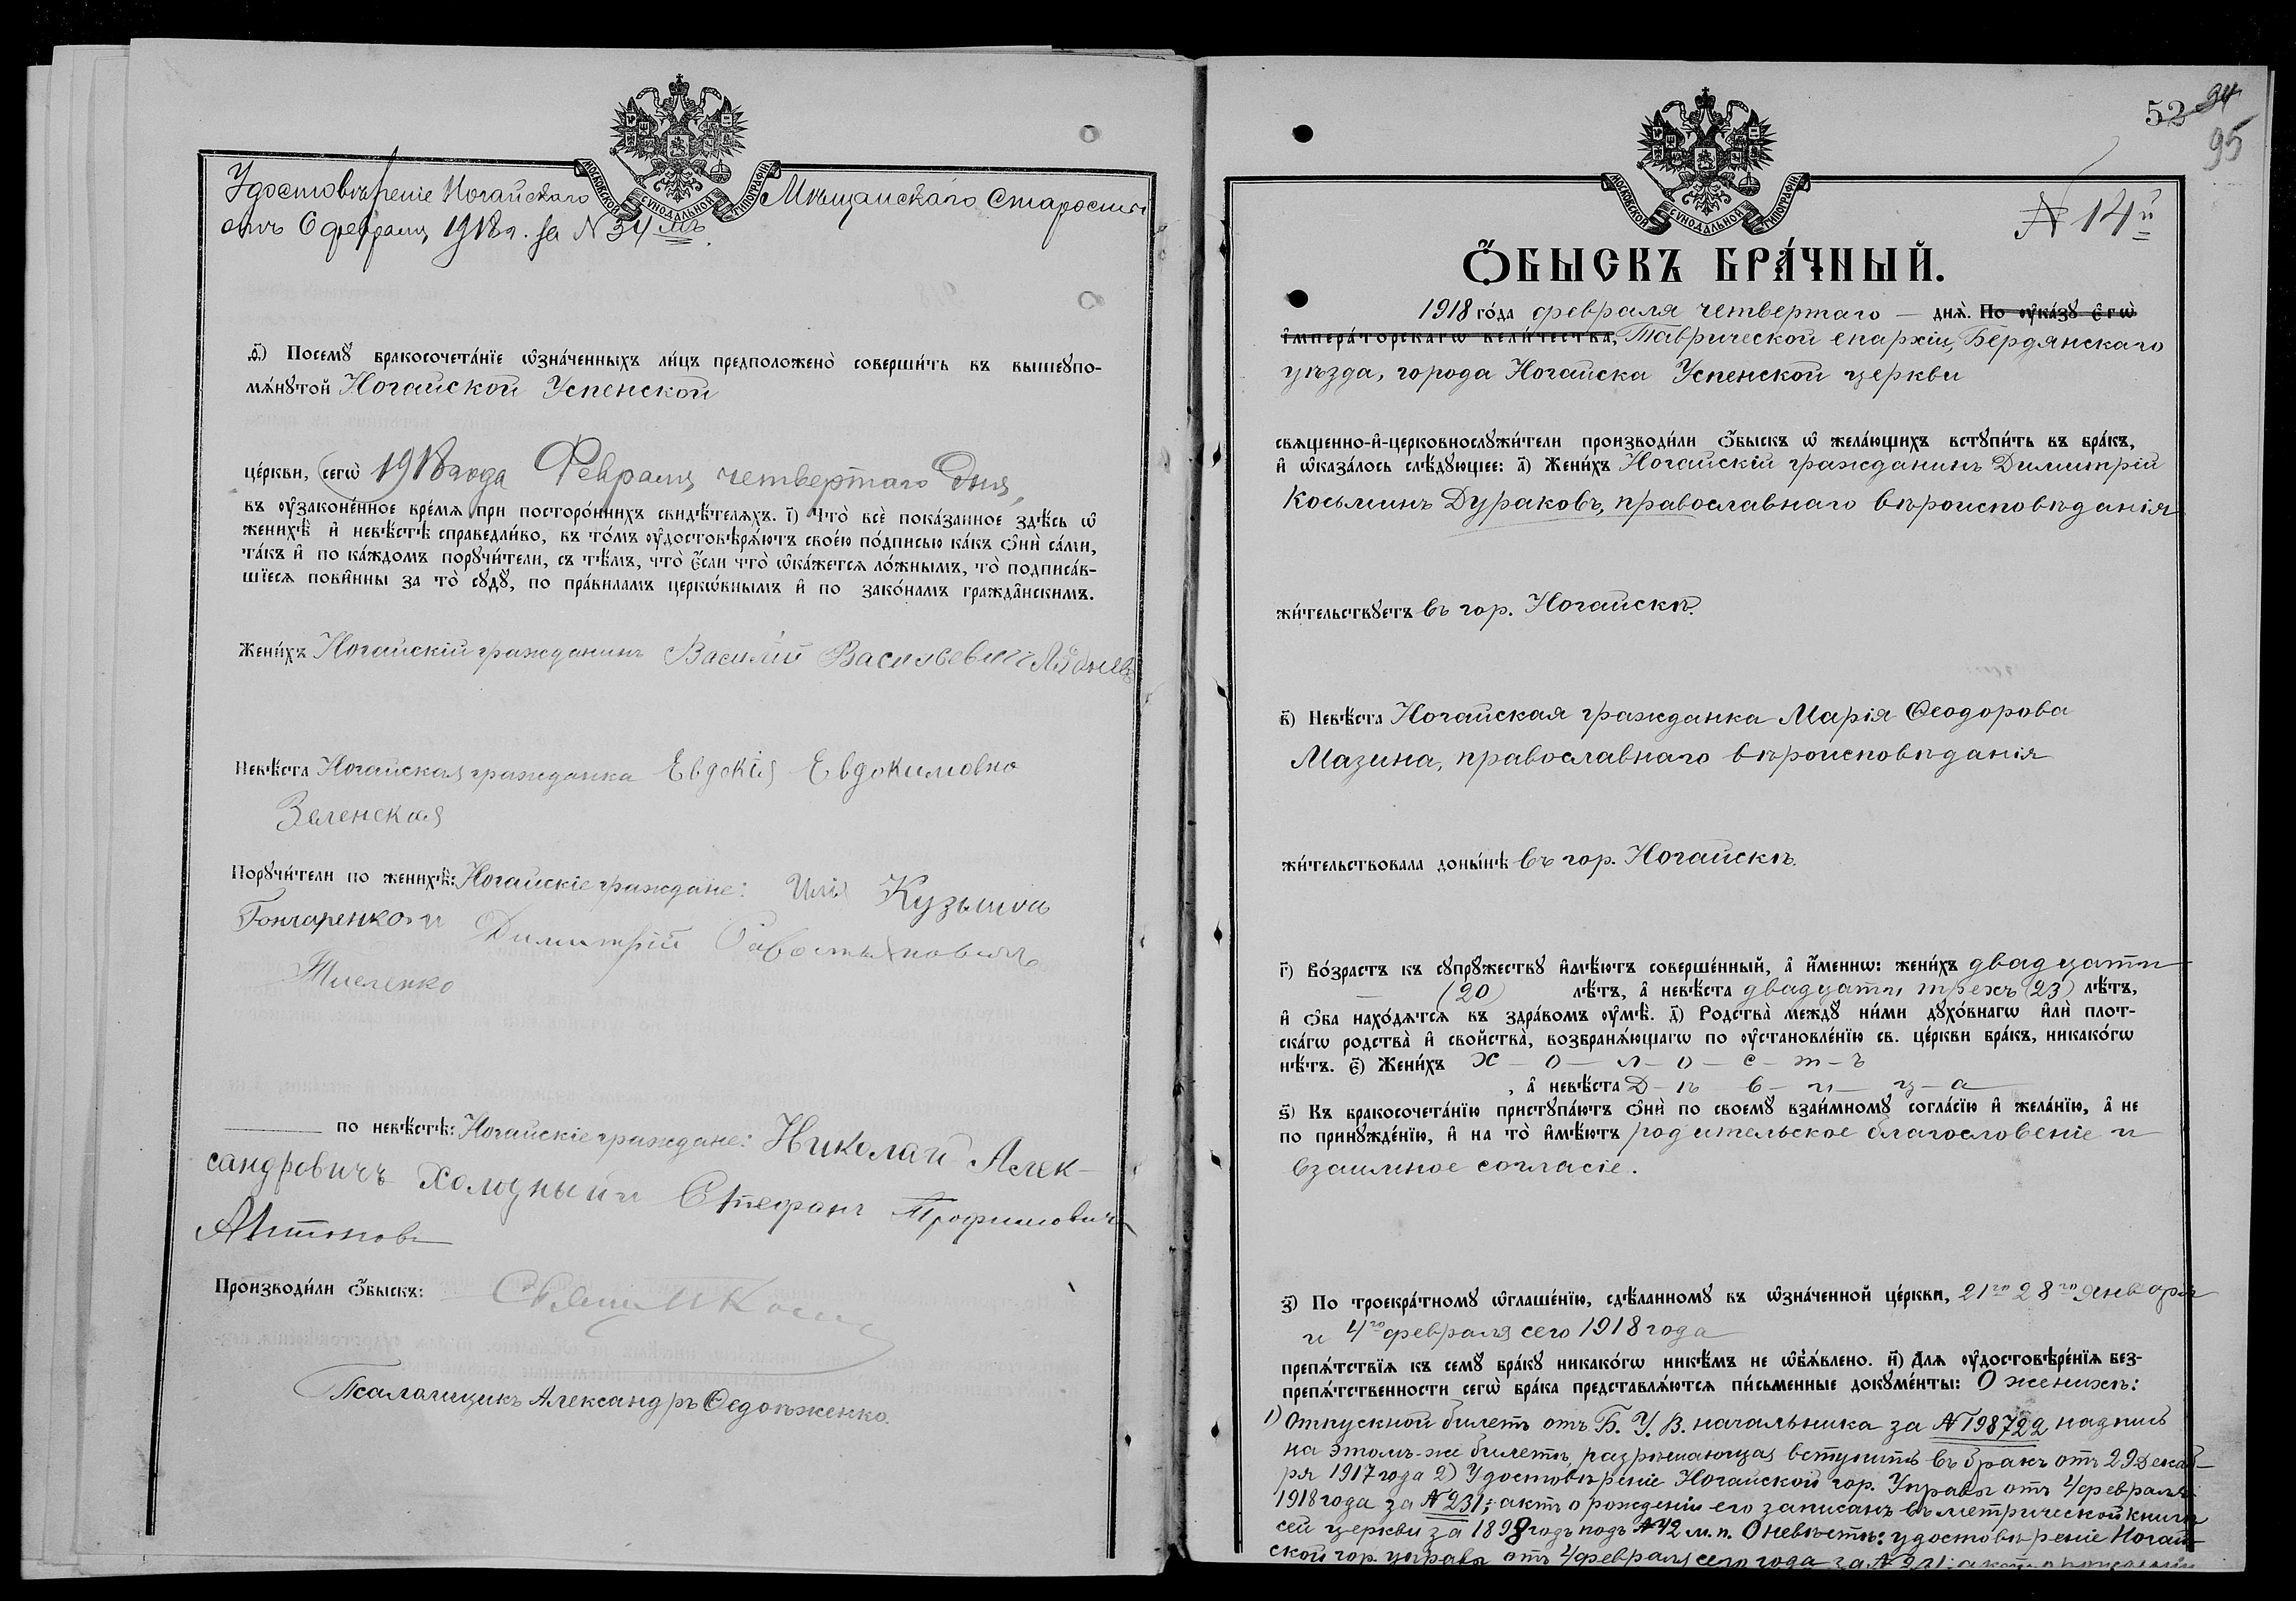 Удостовѣреніе Ногайскаго Мѣщанскаго Старосты
отъ 6 февраля 1918 г. за № 34мъ.
МОСКОВСКОЙ СѴНОДАЛЬНОЙ ТИПОГРАФІИ
ѳ҃) Посемꙋ̀ бракосочета́нїе ѡ҆зна́ченныхъ ли́цъ предположено̀ соверши́ть въ вышеꙋпо-
мѧ́нꙋтой Ногайской Успенской
це́ркви, сегѡ̀ 1918 года Февраля четвертаго дня,
въ ᲂу҆законе́нное вре́мѧ при посторо́ннихъ свидѣ́телѧхъ. і҃) Что̀ всѐ пока́занное здѣ́сь ѡ҆
женихѣ̀ и҆ невѣ́стѣ справедли́во, въ то́мъ ᲂу҆достовѣрѧ́ютъ свое́ю по́дписью ка́къ ѻ҆нѝ са́ми,
та́къ и҆ по ка́ждомъ порꙋчи́тели, съ тѣ́мъ, что̀ є҆́сли что̀ ѡ҆ка́жетсѧ ло́жнымъ, то̀ подписа́в-
шїесѧ пови́нны за то̀ сꙋдꙋ̀, по пра́виламъ церкѡ́внымъ и҆ по зако́намъ гражда́нскимъ.
Жени́хъ Ногайскій гражданинъ Василій Васильевичъ
Невѣ́ста Ногайская гражданка Евдокія Евдокимовно
Зеленская
Порꙋчи́тели по женихѣ̀: Ногайскіе граждане: Илія Кузьмичъ
Гончаренко и Димитрій
по невѣ́стѣ: Ногайскіе граждане: Николай Алек-
сандровичъ Холодный и Стефанъ Трофимовичъ
Антоновъ
Производи́ли ѻ҆́быскъ: Священникъ
Псаломщикъ Александръ Ѳедорженко.
53 94
95
№ 14й
МОСКОВСКОЙ СѴНОДАЛЬНОЙ ТИПОГРАФІИ
Ѻ҆́БЫСКЪ БРА́ЧНЫЙ.
1918 го́да февраля четвертаго дня̀. По ᲂу҆ка́зꙋ Є҆гѡ̀
І҆мпера́торскагѡ вели́чества, Таврической епархіи, Бердянскаго
уѣзда, города Ногайска Успенской церкви
свѧщенно-и҆-церковнослꙋжи́тели производи́ли ѻ҆́быскъ ѡ҆ жела́ющихъ встꙋпи́ть въ бра́къ,
и҆ ѡ҆каза́лось слѣ́дꙋющее: а҃) Жени́хъ Ногайскій гражданинъ Димитрій
Косьминъ Дураковъ, православнаго вѣроисповѣданія
жи́тельствꙋетъ въ гор. Ногайскѣ.
в҃) Невѣ́ста Ногайская гражданка Марія Ѳеодорова
Мазина, православнаго вѣроисповѣданія
жи́тельствовала доны́нѣ въ гор. Ногайскѣ.
г҃) Во́зрастъ къ сꙋпрꙋ́жествꙋ и҆мѣ́ютъ соверше́нный, а҆ и҆́меннѡ: жени́хъ двадцати
(20) лѣ́тъ, а҆ невѣ́ста двадцати трехъ (23) лѣ́тъ,
и҆ ѻ҆́ба нахо́дятсѧ въ здра́вомъ ᲂу҆мѣ̀. д҃) Родства̀ междꙋ̀ ни́ми дꙋхо́внагѡ и҆лѝ плот-
ска́гѡ родства̀ и҆ свойства̀, возбранѧ́ющагѡ по ᲂу҆становле́нїю св. це́ркви бра́къ, никако́гѡ
нѣ́тъ. є҃) Жени́хъ х—о—л—о—с—т—ъ
, а҆ невѣ́ста д—ѣ—в—и—ц—а
ѕ҃) Къ бракосочета́нїю пристꙋпа́ютъ ѻ҆нѝ по своемꙋ̀ взаи́мномꙋ согла́сїю и҆ жела́нїю, а҆ не
по принꙋжде́нїю, и҆ на то̀ и҆мѣ́ютъ родительское благословеніе и
взаимное согласіе.
з҃) По троекра́тномꙋ ѡ҆глаше́нїю, сдѣ́ланномꙋ въ ѡ҆зна́ченной це́ркви, 21го 28го января
и 4го февраля сего 1918 года
препѧ́тствїя къ семꙋ̀ бра́кꙋ никако́гѡ никѣ́мъ не ѡ҆б̾ѧ́влено. и҃) Длѧ ᲂу҆достовѣре́нїя без-
препѧ́тственности сегѡ̀ бра́ка представлѧ́ютсѧ пи́сьменные докꙋме́нты: О женихѣ:
1) Отпускной билетъ отъ Б. У. В. начальника за № 198722 надпись
на этомъ-же билетѣ, разрѣшающая вступить въ бракъ отъ 29 декаб-
ря 1917 года 2) Удостовѣреніе Ногайской гор. Управы отъ 4 февраля
1918 года за № 231; актъ о рожденіи его записанъ въ метрической книгѣ
сей церкви за 1898 годъ подъ № 42 м. п. О невѣстѣ: удостовѣреніе Ногай-
ской гор. управы отъ 4 февраля сего года за №